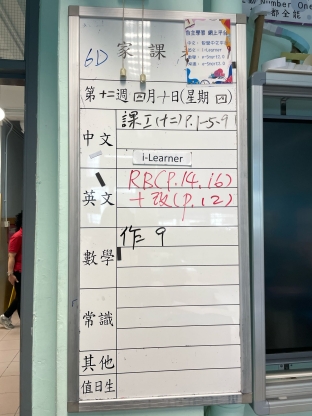 6D 家課
自主學習 網上平台
i-Learner
第十二週四月十日(星期四)
中文 課工(十二)P.1-5.9
i-Learner
英文 RB(P.14,16)
+改(P.12)
數學 作 9
常識
其他
值日生
Number One
都全能